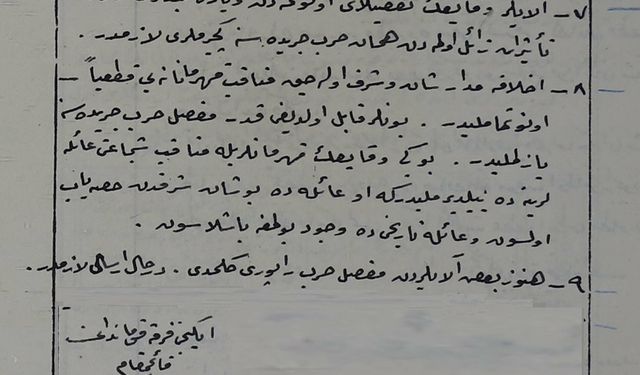 ٧ـ آلايلر وقايعك تفصيلاتى اونوتمه دن
تأثيرات زائل اولمه دن همان حرب جريده سنه كچيرملرى لازمدر .
٨ـ اخلافه مدار شان وشرف اوله جق مناقب قهرمانانه يى قطعياً ــ
اونوتمامليدر . بونلر قابل اولديغى قدر مفصل حرب جريده سنه
يازلمليدر . بوكبى وقايعك قهرمانلريله مناقب شجاعتى عائله
لرينه ده بيلديرمليدركه او عائله ده بوشان شرفدن حصه ياب
اولسون وعائله تاريخى ده وجود بولمغه باشلاسون .
٩ـ هنوز بعض آلايلردن مفصل حرب راپورى كلمدى . درحال ارسالى لازمدر .
ايكنجى فرقه قوماندانى
قائمقام